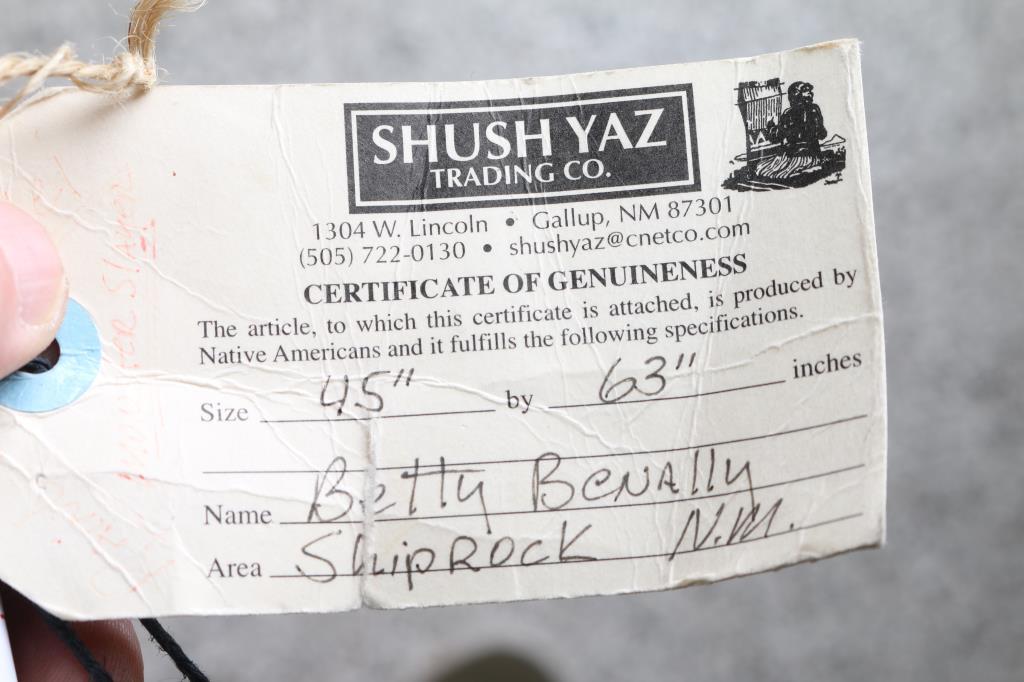 SHUSH YAZ
TRADING CO.
1304 W. Lincoln • Gallup, NM 87301
(505) 722-0130 • shushyaz@cnetco.com
CERTIFICATE OF GENUINENESS
The article, to which this certificate is attached, is produced by
Native Americans and it fulfills the following specifications.
Size 45" by 63" inches
Name Betty Benally
Area Shiprock N.M.